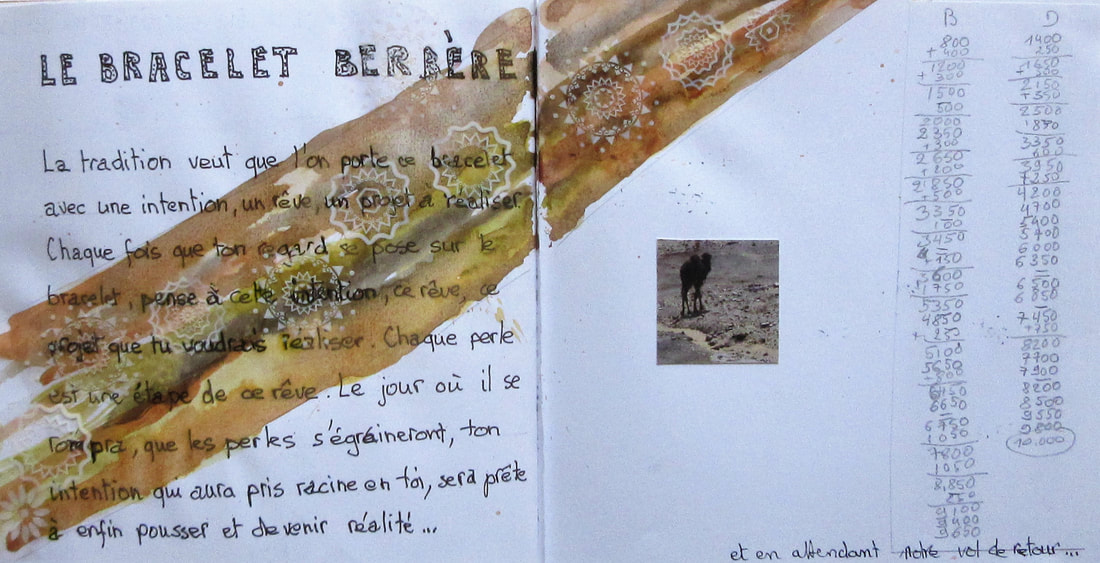 LE BRACELET BERBÈRE
La tradition veut que l'on porte ce bracelet
avec une intention, un rêve, un projet à réaliser.
Chaque fois que ton regard se pose sur le
bracelet, pense à cette intention, ce rêve, ce
projet que tu voudrais réaliser. Chaque perle
est une étape de ce rêve. Le jour où il se
rompra, que les perles s'égraineront, ton
intention qui aura pris racine en toi, sera prête
à enfin pousser et devenir réalité...
B
800
+ 400
1200
+ 300
1500
500
2000
2350
+ 300
2650
+ 200
2850
+ 500
3350
100
3450
5350
4850
+ 250
5100
6650
6750
1050
7800
1050
8850
9650
D
1400
250
1650
+ 500
2150
+ 350
2500
3350
600
3950
4200
4700
5400
5700
6000
6350
7450
+ 750
8200
7700
7900
8200
8500
9550
9800
10.000
et en attendant notre vol de retour...